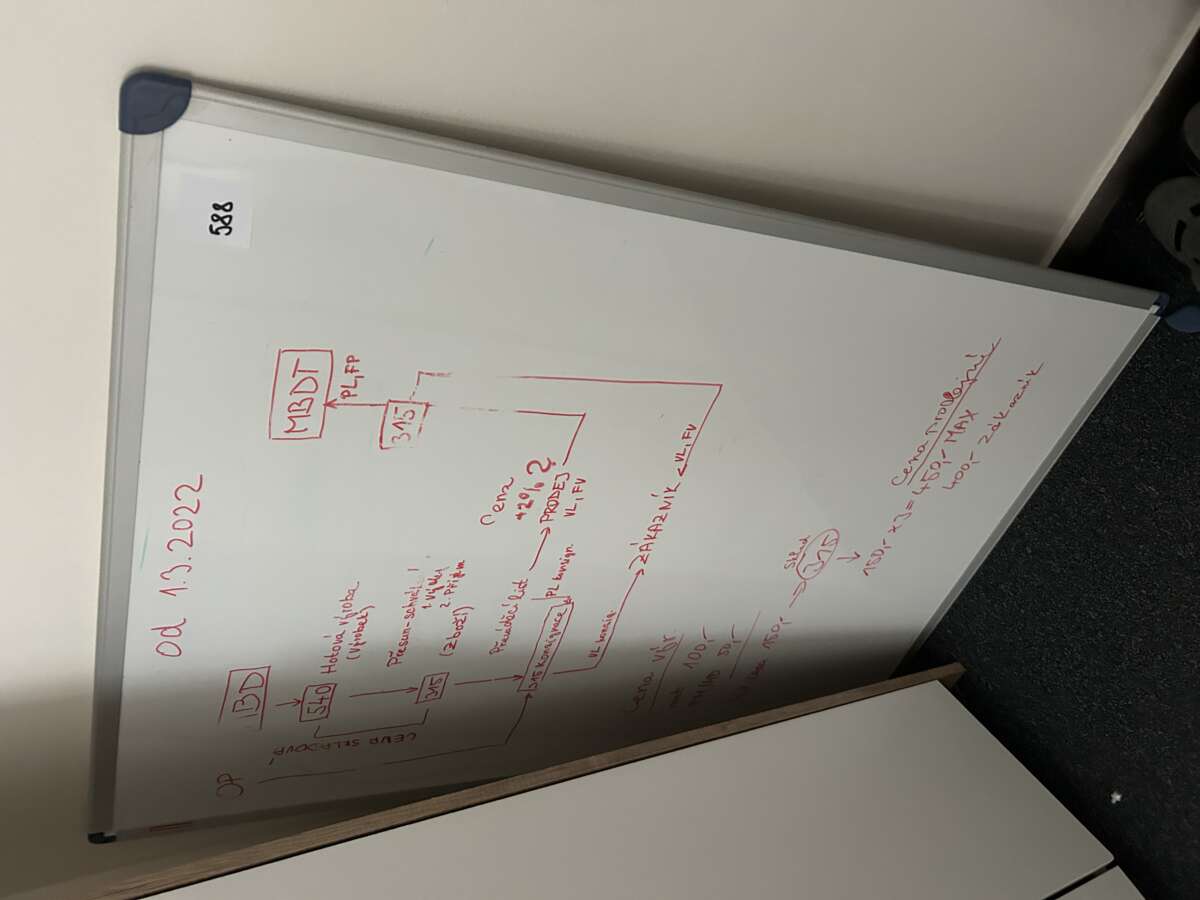 588
od 1.3.2022
OP
IBD
MBDT
540
Hotová výroba
(výrobek)
PL, FP
CENA SKLADOVÁ
Přesun-schvál.
1. Výdej
2. Příjem
315
(zboží)
315
Cena
+2%?
Prováděcí list
PRODEJ
VL, FV
315 konsignace
PL konsign.
VL konsig.
ZÁKAZNÍK
VL, FV
Cena výr.
mat 100,-
50,-
150,-
sklad
315
150,- x 3 = 450,- MAX
Cena prodejní
400,- zákazník